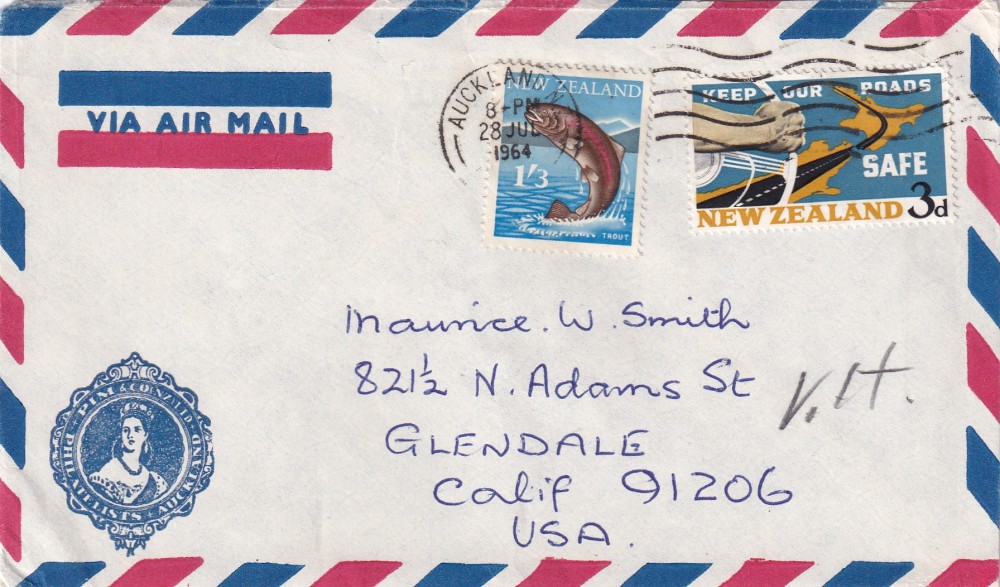 VIA AIR MAIL
AUCKLAND N.Z.
8-PM
28 JUL
1964
NEW ZEALAND
1/3
TROUT
KEEP OUR ROADS
SAFE
NEW ZEALAND 3d
Maurice. W. Smith
821½ N. Adams St
V.H.
GLENDALE
Calif 91206
USA.
PIM & CO N.Z. LTD
PHILATELISTS + AUCKLAND